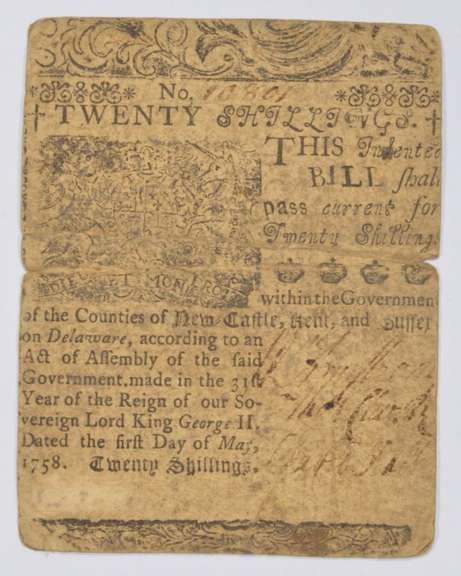 No.
TWENTY SHILLINGS.
THIS Indented
BILL shall
pass current for
Twenty Shillings
DIEU ET MON DROIT
within the Government
of the Counties of New-Castle, Kent, and Sussex
on Delaware, according to an
Act of Assembly of the said
Government, made in the 31st
Year of the Reign of our So-
vereign Lord King George II.
Dated the first Day of May,
1758. Twenty Shillings.